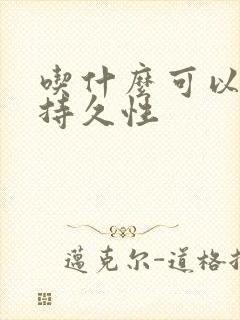 喫什麼可以
持久性
邁克尔-道格